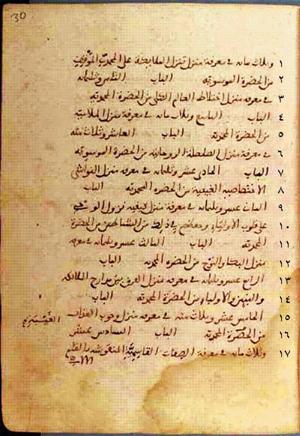 30
وثلاث مائة في معرفة منزل تنزل الملائكة على المحمدي الموقف ١
من الحضرة الموسوية الباب الثامن وثلثمائة ٢
في معرفة منزل اختلاط العالم الكلي من الحضرة المحمدية ٣
الباب التاسع وثلاث مائة في معرفة منزل الملامية ٤
من الحضرة المحمدية الباب العاشر وثلاث مائة ٥
في معرفة منزل الصلصلة الروحانية من الحضرة الموسوية ٦
الباب الحادي عشر وثلثمائة في معرفة منزل النواشئ ٧
الاختصاصية الغيبية من الحضرة المحمدية الباب ٨
الثاني عشر وثلثمائة في معرفة منزل كيفية نزول الوحي ٩
على قلوب الاولياء وحفظهم في ذلك من الشياطين من الحضرة ١٠
المحمدية الباب الثالث عشر وثلثمائة في معرفة ١١
منزل البكاء والنوح من الحضرة المحمدية الباب ١٢
الرابع عشر وثلثمائة في معرفة منزل الفرق بين مدارج الملائكة ١٣
والنبيين والاولياء من الحضرة المحمدية الباب ١٤
الخامس عشر وثلاث مائة في معرفة منزل وجوب العذاب ١٥
من الحضرة المحمدية الباب السادس عشر ١٦
وثلاث مائة في معرفة الصفات القائمة المنقوشة بالقلم ١٧